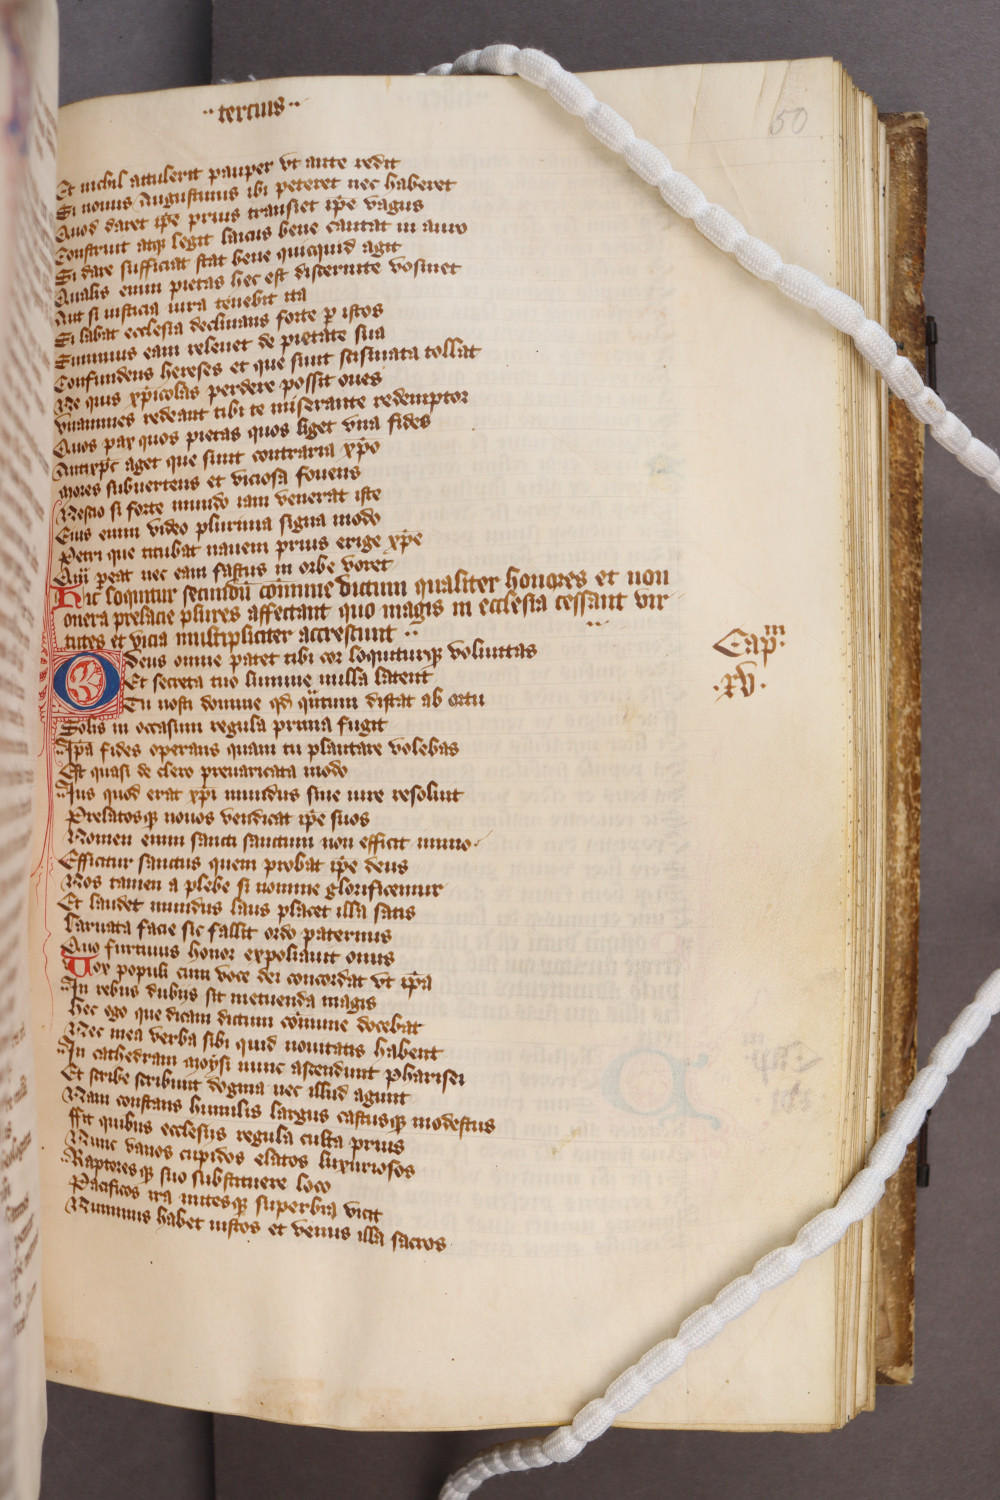 ·· tercius ··
50
Et nichil attulerit pauper vt ante redit
Si nouus Augustinus ibi peteret nec haberet
Quos daret ip̄e prius transiet ip̄e vagus
Construit atq̨ legit laicus bene cantat in auro
Si dare sufficiat stat bene quicquid agit
Qualis enim pietas hec est discernite vosmet
Aut si iusticia iura tenebit ita
Si labat ecclesia declinans forte p̱ istos
Summus eam releuet de pietate sua
Confundens hereses et que sunt scismata tollat
Ne quis xp̄icolas perdere possit oues
Vnanimes redeant tibi te miserante redemptor
Quos pax quos pietas quos liget vna fides
Antixp̄c aget que sunt contraria xp̄o
Mores subuertens et viciosa fouens
Nescio si forte mundo iam venerat iste
Eius enim video plurima signa modo
Petri que titubat nauem prius erige xp̄e
Quā peat nec eam fastus in orbe voret
Hic loquitur secundū cōmune dictum qualiter honores et non
onera prelacie plures affectant quo magis in ecclesia cessant vir
tutes et vicia multipliciter accrescunt ··
Capᵐ
·xv·
O deus omne patet tibi cor loquiturq̨ voluntas
Et secreta tuo lumine nulla latent
Tu nosti domine qd̄ q̄ntum distat ab ortu
Solis in occasum regula prima fugit
Ip̄a fides operans quam tu plantare volebas
Est quasi de clero preuaricata modo
Ius quod erat xp̄i mundus sine iure resoluit
Prelatosq̨ nouos vendicat ip̄e suos
Nomen enim sancti sanctum non efficit immo
Efficitur sanctus quem probat ip̄e deus
Nos tamen a plebe si nomine glorificemur
Et laudet mundus laus placet illa satis
Laruata facie sic fallit ordo paternus
Quo furtiuus honor expoliauit onus
Vox populi cum voce dei concordat vt ip̄a
In rebus dubiis sit metuenda magis
Hec ego que dicam dictum cōmune docebat
Nec mea verba sibi quid nouitatis habent
In cathedram moysi nunc ascendunt pharisei
Et scribe scribunt dogma nec illud agunt
Nam constans humilis largus castusq̨ modestus
Fit quibus ecclesiis regula culta prius
Nunc vanos cupidos elatos luxuriosos
Raptoresq̨ suo substituere loco
Pacificos ira mitesq̨ superbia vicit
Nummus habet iustos et venus illa sacros